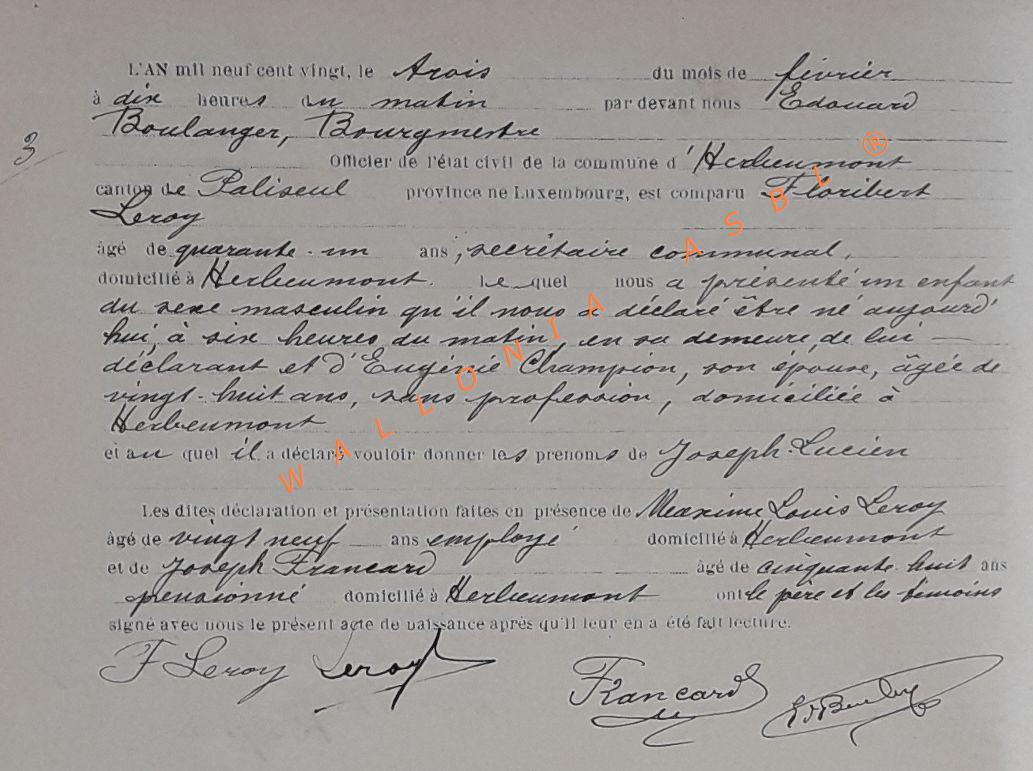 L'AN mil neuf cent vingt, le trois du mois de février
à dix heures du matin par devant nous Edouard
Boulanger, Bourgmestre
3
Officier de l'état civil de la commune d'Herbeumont
canton de Paliseul province de Luxembourg, est comparu Floribert
Leroy
âgé de quarante-un ans, secrétaire communal,
domicilié à Herbeumont. Le quel nous a présenté un enfant
du sexe masculin qu'il nous a déclaré être né aujourd'
hui, à six heures du matin, en sa demeure, de lui —
déclarant et d'Eugénie Champion, son épouse, âgée de
vingt-huit ans, sans profession, domiciliée à
Herbeumont
et au quel il a déclaré vouloir donner les prénoms de Joseph-Lucien
Les dites déclaration et présentation faites en présence de Maxime Louis Leroy
âgé de vingt neuf ans employé domicilié à Herbeumont
et de Joseph Francard âgé de cinquante-huit ans
pensionné domicilié à Herbeumont ont le père et les témoins
signé avec nous le présent acte de naissance après qu'il leur en a été fait lecture.
F Leroy Leroy Francard
WALLONIA ASBL ®